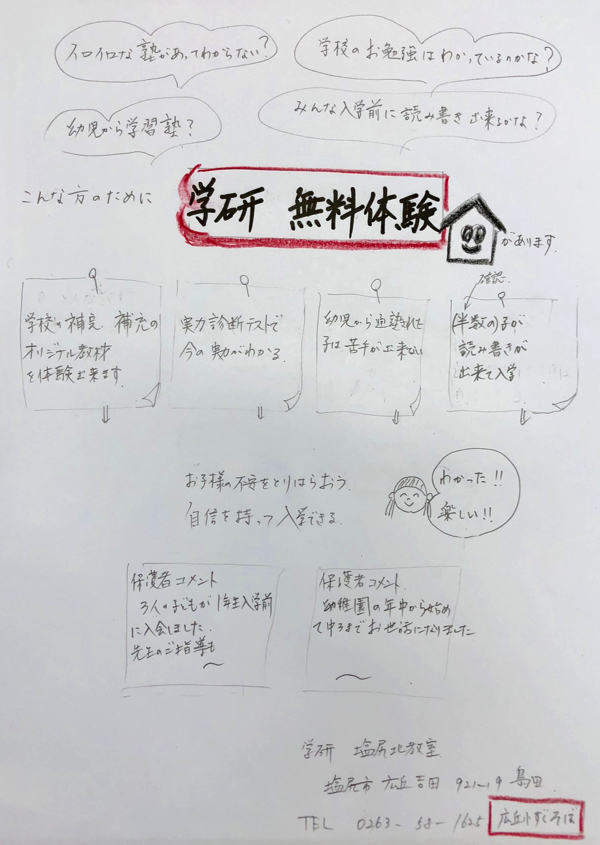 イロイロな塾があってわからない?
学校のお勉強はわかっているのかな?
幼児から学習塾?
みんな入学前に読み書き出来るかな?
こんな方のために
学研 無料体験
があります
確認
学校の補完 補充の
オリジナル教材
を体験出来ます
実力診断テストで
今の実力がわかる
幼児から通塾された
子は苦手が出来ない
半数の子が
読み書きが
出来て入学
お子様の不安をとりはらおう
自信を持って入学できる
わかった!!
楽しい!!
保護者コメント
3人の子どもが1年生入学前
に入会しました
先生のご指導も
保護者コメント
幼稚園の年中から始め
て中3までお世話になりました
学研 塩尻北教室
塩尻市 広丘吉田 921-19 島田
TEL 0263-58-1625
広丘小すぐそば